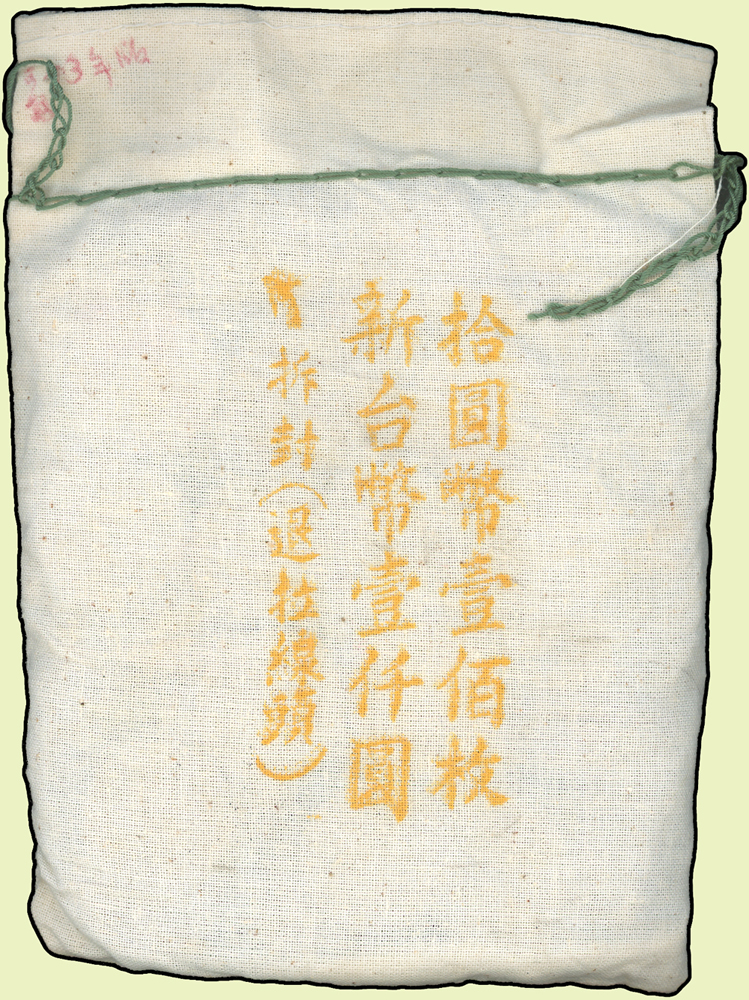 拾圓幣壹佰枚
新台幣壹仟圓
拆封(退拉線頭)